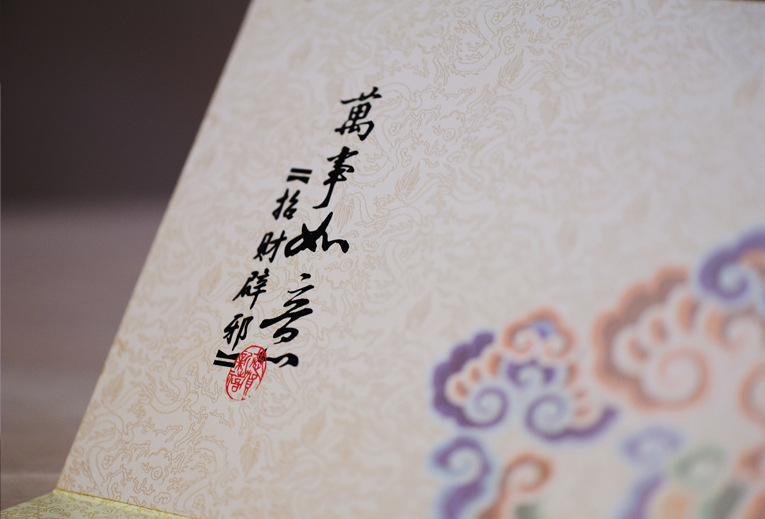 萬事如意
『招财辟邪』